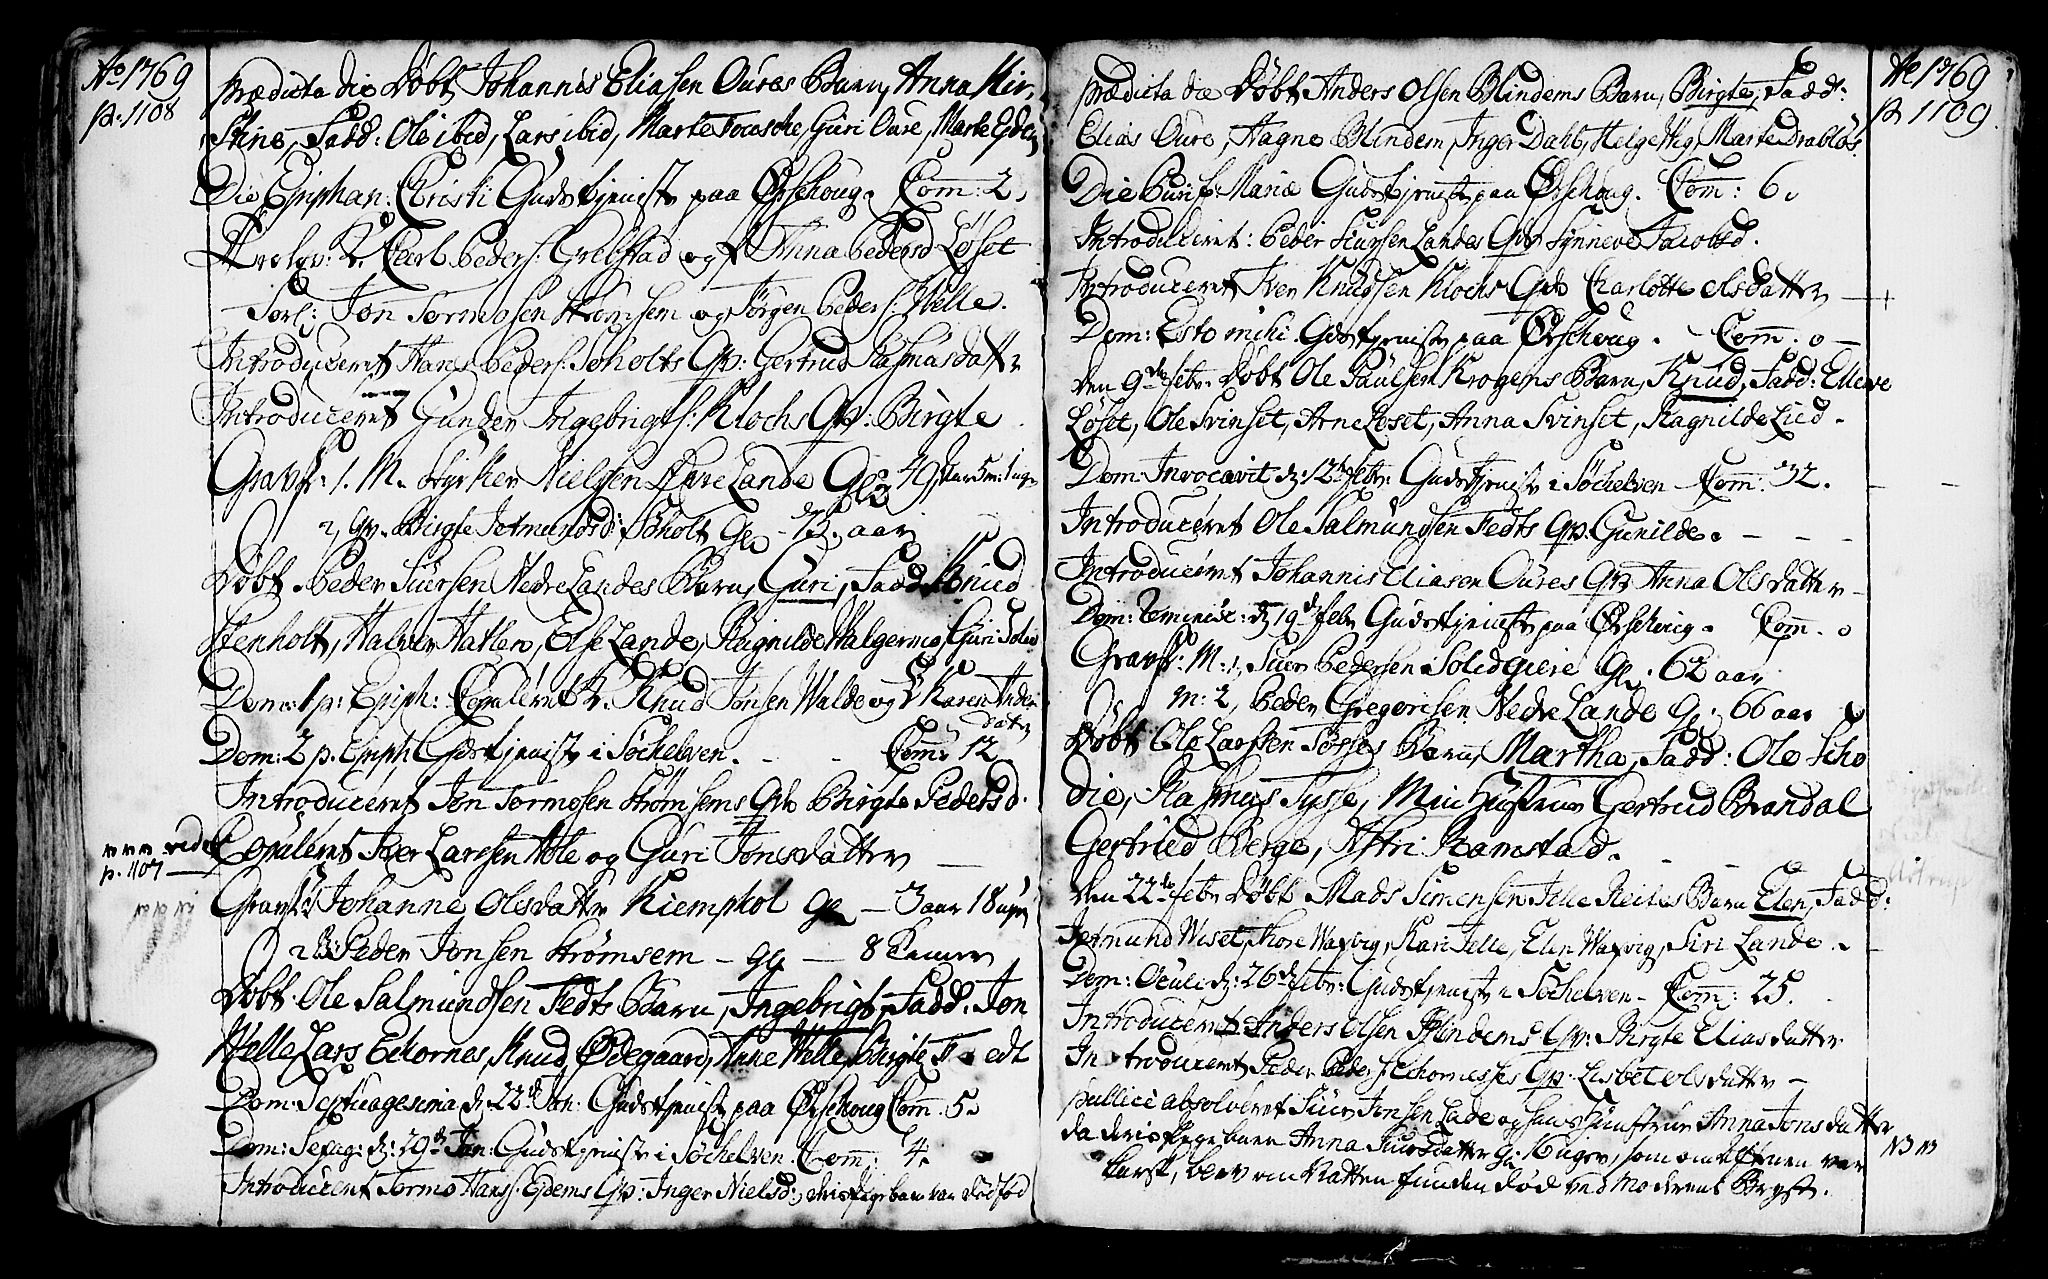 Ao 1769
p. 1108
Prædicta die Døbt Johannis Eliasen Oures Barn, Anna Kir,
stine, Fadd: Ole ibid, Lars ibid, Marte, Guri Oure, Marte Eydem
Die Epiphan: Christi Gudstjenist paa Ørschoug. Com: 2,
Trolov: K. Carl Peders: Grebstad og P Anna Pedersd Løset
Forl: Jon Tormosen Strømsem og Jørgen Peders: Welle.
Introduceret Hans Peders: Søholts Qv: Gertrud Rasmusdatter
Introduceret Gunder Ingebrigts: Klochs Qv: Birgte
Gravf: 1. M. Styrker Nielsen Øvre Lande Gl: 40 Aar 5 m: 1 uge
2, qv. Birgte Jetmundsd: Søholt Gl - 73. aar
Døbt Peder Siursen Nedre Landes Barn, Guri, Fadd: Knud
Stenholt, Halver Hatlen, Else Lande, Ragnilde Walgermo, Guri
Dom: 1 p: Epiph: Copuleret K. Knud Jonsen Walde og P Karen Anders
datter
Dom: 2 p. Epiph Gudstjenist i Søchelven. - - Com: 12
Introduceret Jon Tormosen Strømsems Qv Birgte Pedersd.
NNN vide
p. 1107
Copuleret Iver Larssen Hole og Guri Jonsdatter
Gravf: Johanne Olsdatter Kiemphol gl - 3 aar 18 uger
2 B: Peder Jonsen Strømsem - gl - 8 Timer
Døbt Ole Salmundsen Fedts Barn, Ingebrigt, Fadd: Jon
Welle Lars Echornes, Knud Ødegaard, Anne Welle, Birgte Fedt
Dom: Septuagesima d: 22de Jan: Gudstjenist paa Ørschoug Com: 5.
Dom: Sexag: d: 29de Jan: Gudstjenist i Søchelven. Com: 4.
Introduceret Tormo Hans: Eydems Qv: Inger Nielsd:, deris fage barn var dødfød
Ao 1769
p. 1109
Prædicta die Døbt Anders Olsen Blindems Barn, Birgte, Fadd:
Elias Oure, Hagne Blindem, Inger Dahl, Helge Stig, Marte Drabløs.
Die Purif: Mariæ Gudstjenist paa Ørschoug. Com: 6.
Introduceret: Peder Siursen Landes Qv Synneve Jacobsd.
Introduceret Iver Knudsen Klochs Qv Charlotte olsdatter
Dom: Esto mihi Gudstjenist paa Ørschoug. - Com. 0 -
den 9de febr. Døbt Ole Paulsen Krogems Barn, Knud, Fadd: Elleve
Løset, Ole Svinset, Arne Løset, Anna Svinset, Ragnilde Lied.
Dom: Invocavit d: 12te febr: Gudstjenist i Søchelven - Com: 32.
Introduceret Ole Salmundsen Fedts Qv. Gunilde. - - -
Introduceret Johannis Eliasen Oures Qv Anna Olsdatter
Dom: Reminisc: d 19de febr Gudstjenist paa Ørschoug. Com. 0
Gravf: M: 1, Siur Pedersen Gl. 62 aar
M: 2, Peder Gregorisen Nedre Lande gl: 66 aar
Døbt Ole Larssen Tøsses Barn, Martha, Fadd: Ole Scho
die, Rasmus Tysse, Min Hustrue Gertrud Brandal
Gertrued Berge, Astri Ramstad.
den 22de febr Døbt Mads Simensen Reites Barn Elen, Fadd:
Jetmund Weset, Thore Waxvig, Kari, Elen Waxvig, Siri Lande.
Dom: Oculi d: 26de febr: Gudstjenist i Søchelven - Com: 25.
Introduceret Anders Olsen Blindems Qv: Birgte Eliasdatter
Introduceret Peder Peders Echornesses Qv: Lisbet olsdatter -
Publice absolveret Siur Jonsen Lade og hans Hustrue Anna Jonsdatter
da deris fage barn Anna Siursdatter gl: uger, som om aftenen var
karsk, blev om Natten funden død ved Moderens Bryst.
NB